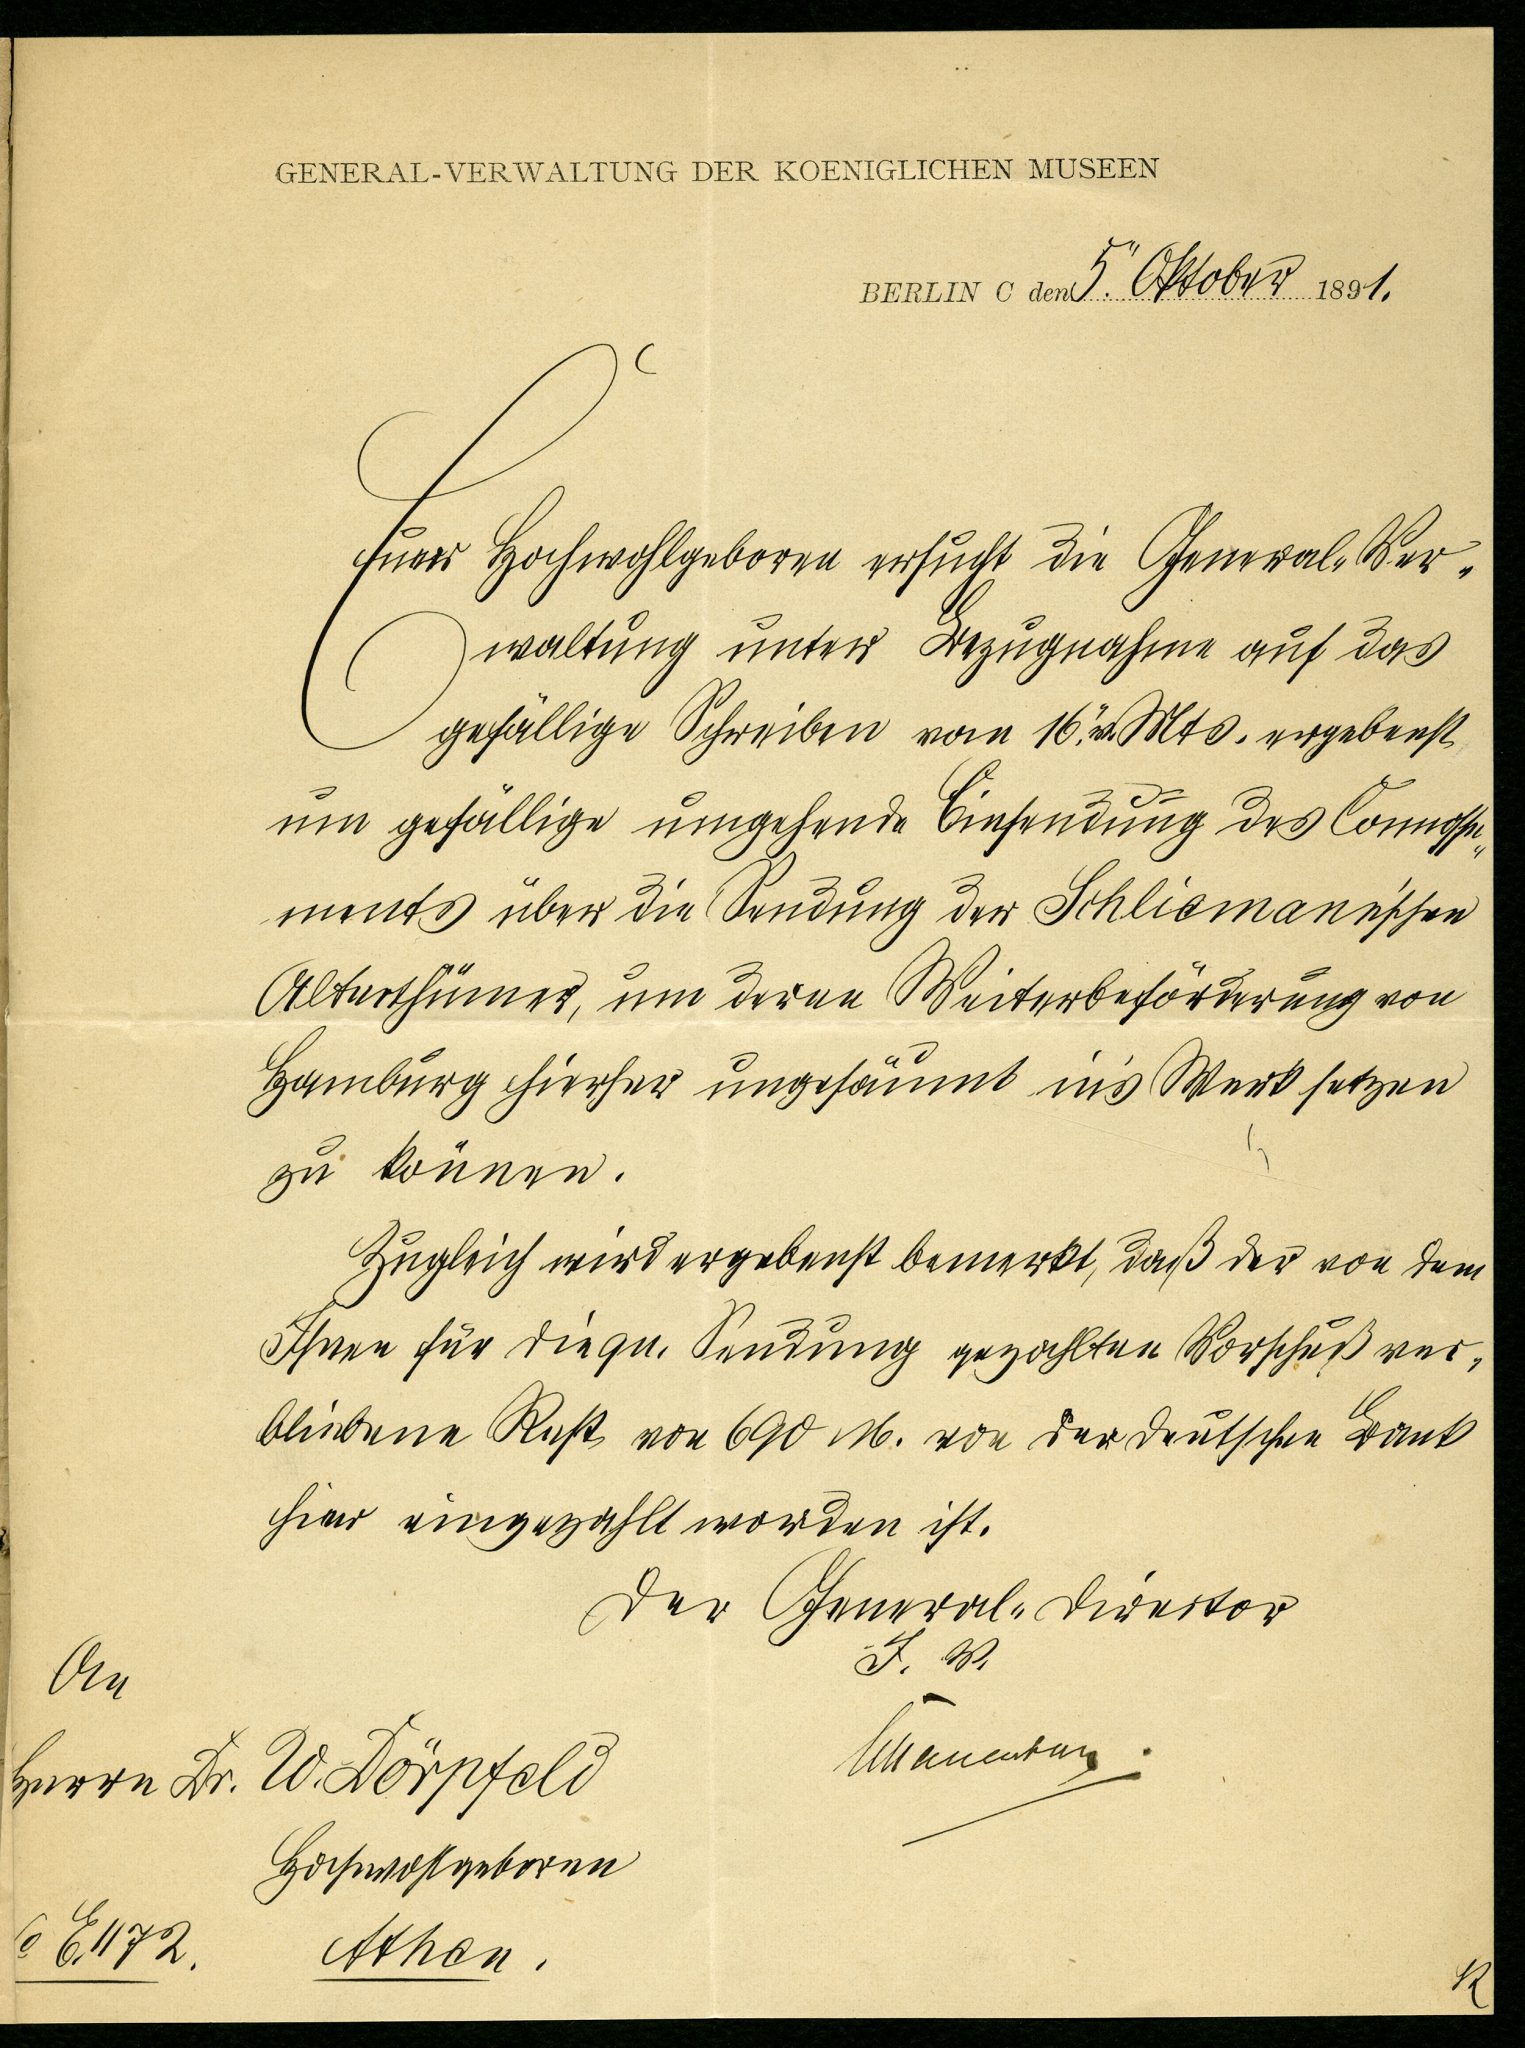 GENERAL-VERWALTUNG DER KOENIGLICHEN MUSEEN
BERLIN C den 5. Oktober 1891.
Euer Hochwohlgeboren ersucht die General-Ver-
waltung unter Bezugnahme auf das
gefällige Schreiben vom 16. v. Mts. ergebenst
um gefällige umgehende Einsendung des Connosse-
ments über die Sendung der Schliemann'schen
Alterthümer, um deren Weiterbeförderung von
Hamburg hierher ungesäumt in's Werk setzen
zu können.
Zugleich wird ergebenst bemerkt, daß der von dem
Ihnen für die qu. Sendung gezahlten Vorschuß ver-
bliebene Rest von 690 M. von der Deutschen Bank
hier eingezahlt worden ist.
Der General-Director
I. V.
An
Herrn Dr. W. Dörpfeld
Hochwohlgeboren
E. 1172.
Athen.